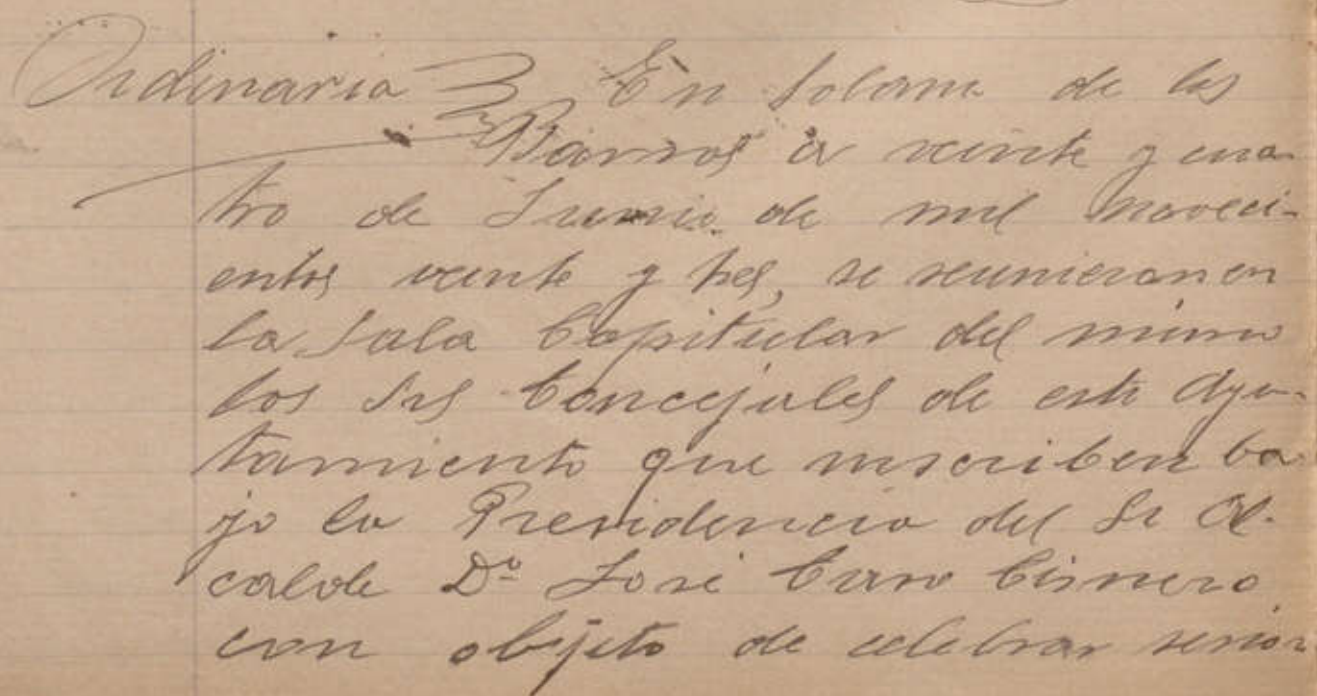 Ordinaria En Solana de los
Barros á veinte y cua-
tro de Junio de mil noveci-
entos veinte y tres, se reunieron en
la Sala Capitular del mismo
los Srs Concejales de este Ayun-
tamiento que suscriben ba
jo la Presidencia del Sr Al-
calde Dº José Caro Cisnero
con objeto de celebrar sesion